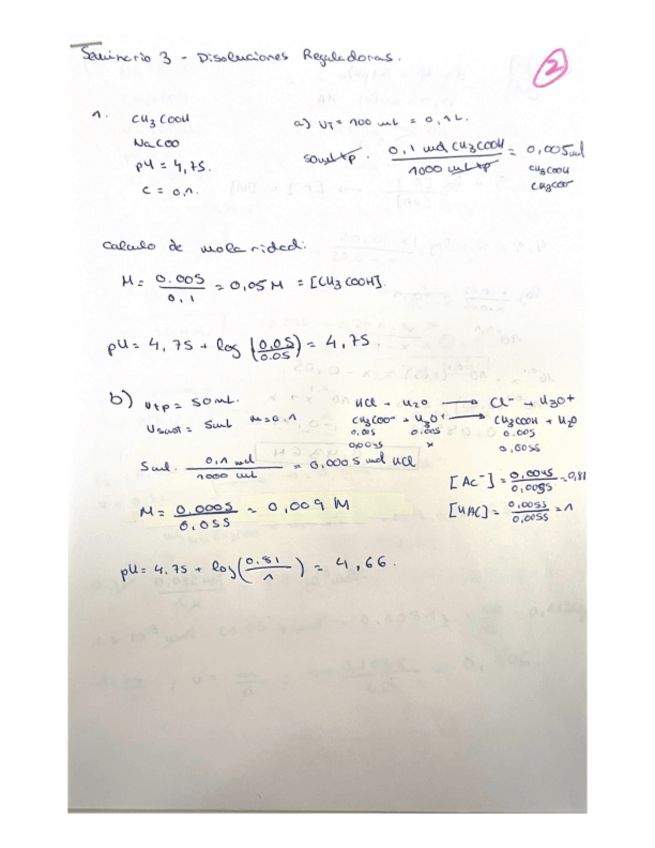 Seminario 3 - Disoluciones Reguladoras.
2
1. CH3COOH
NaCOO
pH = 4,75.
C = 0,1.
a) VT = 100 mL = 0,1 L.
50 mL tp. 0,1 mol CH3COOH / 1000 mL tp = 0,005 mol
CH3COOH
CH3COO-
Calculo de molaridad:
M = 0.005 / 0,1 = 0,05 M = [CH3COOH].
pH = 4,75 + log (0.05 / 0.05) = 4,75.
b) Vtp = 50 mL.
5 mL M = 0,1
HCl + H2O → Cl- + H3O+
CH3COO- + H3O+ → CH3COOH + H2O
0,005 0.005 0.005
x 0,0055
5 mL. 0,1 mol / 1000 mL = 0,0005 mol HCl
M = 0,0005 / 0,055 = 0,009 M
[Ac-] = 0,0045 / 0,0055 = 0,81
[HAc] = 0,0055 / 0,0055 = 1
pH = 4,75 + log (0.81 / 1) = 4,66.